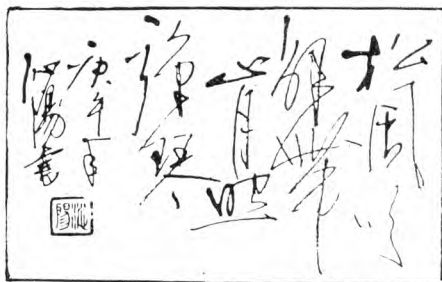 松風吹
解帶
山月照
彈琴
庚午年
陽書